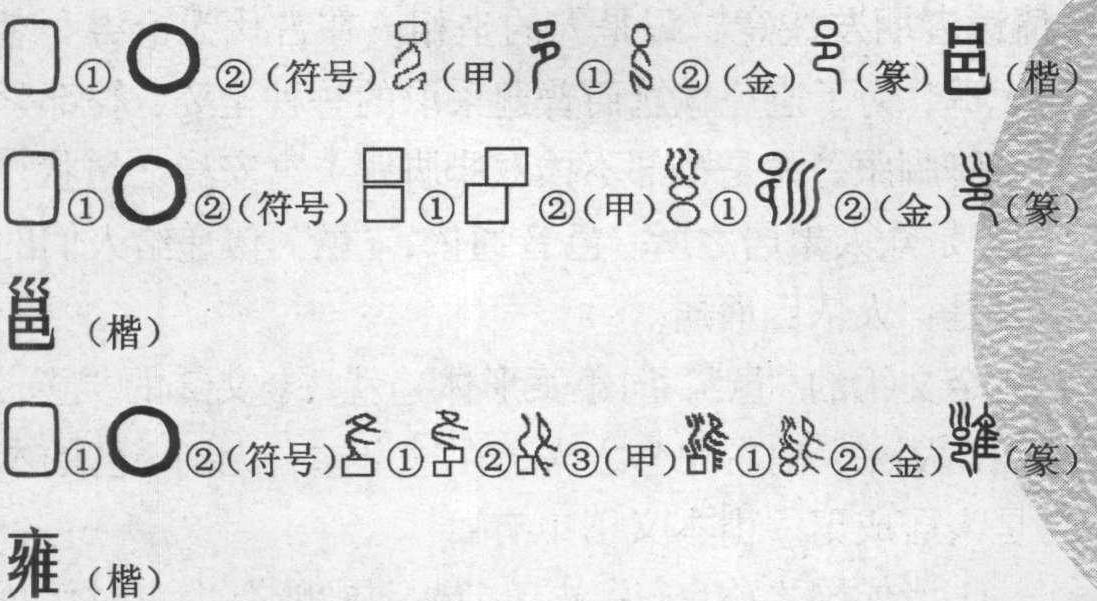 ①②（符号）（甲）①②（金）（篆）邑（楷）
①②（符号）①②（甲）①②（金）（篆）
邕（楷）
①②（符号）①②③（甲）①②（金）（篆）
雍（楷）